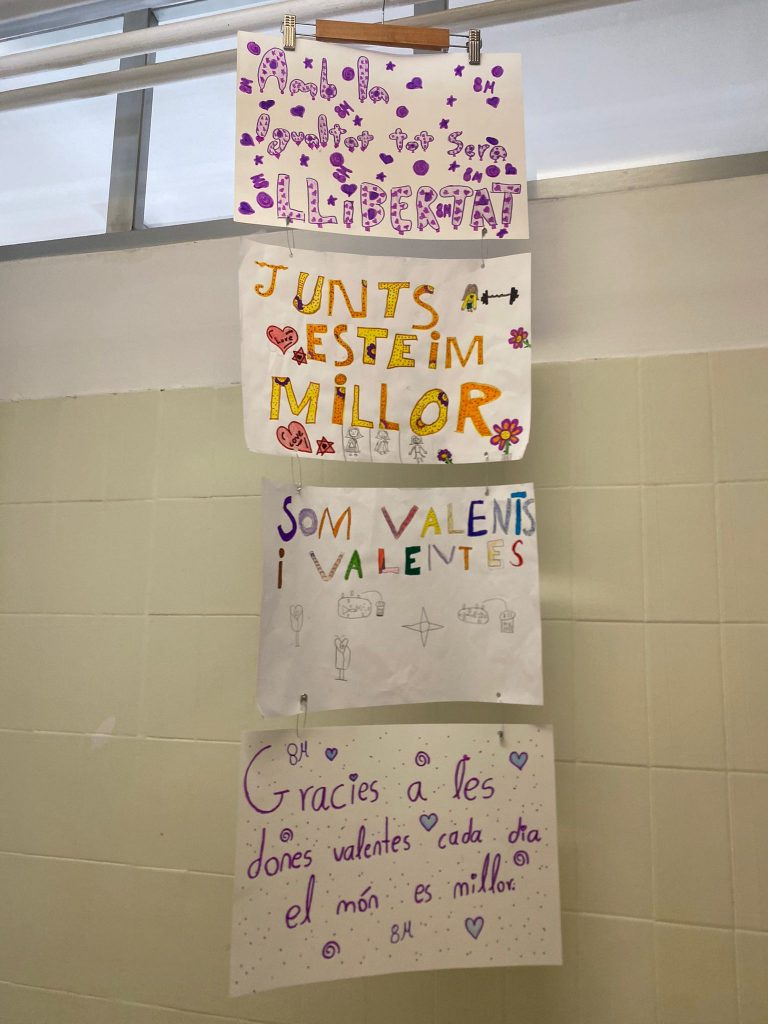 8M
Amb la
8M 8M
igualtat tot serà
8M 8M
8M 8M
LLIBERTAT
8M
JUNTS
Love
ESTEiM
MiLLOR
Love
SOM VALENTS
i VALENTES
8M
Gracies a les
dones valentes cada dia
el món es millor.
8M